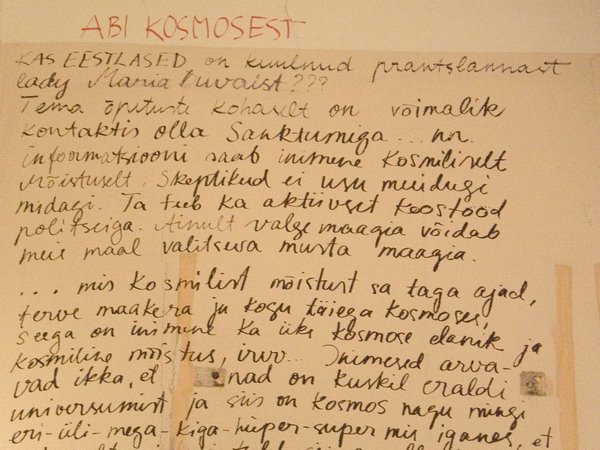 ABI KOSMOSEST
KAS EESTLASED on kuulnud prantslannast
lady Maria Duvaist???
Tema õpetuste kohaselt on võimalik
kontaktis olla Sanktumiga... nn.
informatsiooni saab inimene kosmiliselt
mõistuselt. Skeptikud ei usu muidugi
midagi. Ta teeb ka aktiivset koostööd
politseiga. Ainult valge maagia võidab
meie maal valitseva musta maagia.
... mis kosmilist mõistust sa taga ajad,
terve maakera ju kogu täiega kosmoses,
seega on inimene ka üks kosmose elanik ja
kosmiline mõistus, irw... Inimesed arva-
vad ikka, et nad on kuskil eraldi
universumist ja siis on kosmos nagu mingi
eri-üli-mega-kiga-hüper-super mis iganes, et